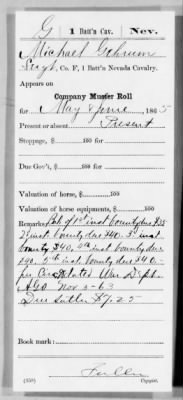 G 1 Batt'n Cav. Nev.
Michael Schrum
Sergt, Co. F, 1 Batt'n Nevada Cavalry.
Appears on
Company Muster Roll
for May & June, 1865
Present or absent Present
Stoppage, $ 100 for
Due Gov't, $ 100 for
Valuation of horse, $ 100
Valuation of horse equipments, $ 100
Remarks: Bal of 1st inst bounty due $35
2d inst bounty due $40. 3d inst
bounty $40, 4th inst bounty due
$90. 5th inst bounty due $40.-
per Cir dated War Dept
AGO Nov 3-63
Due sutler $7.25
Book mark:
(358) Copyist.